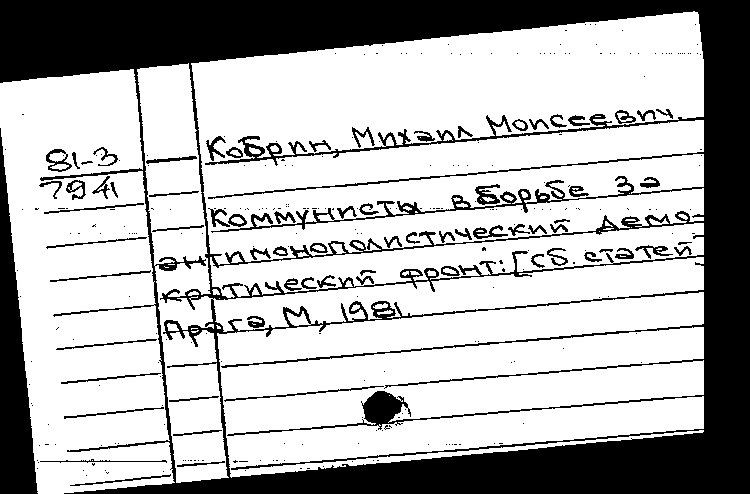 Кобрин, Михаил Моисеевич.
81-3
7941
Коммунисты в борьбе за
антимонополистический демо-
кратический фронт: [Сб. статей
Прага, М., 1981.